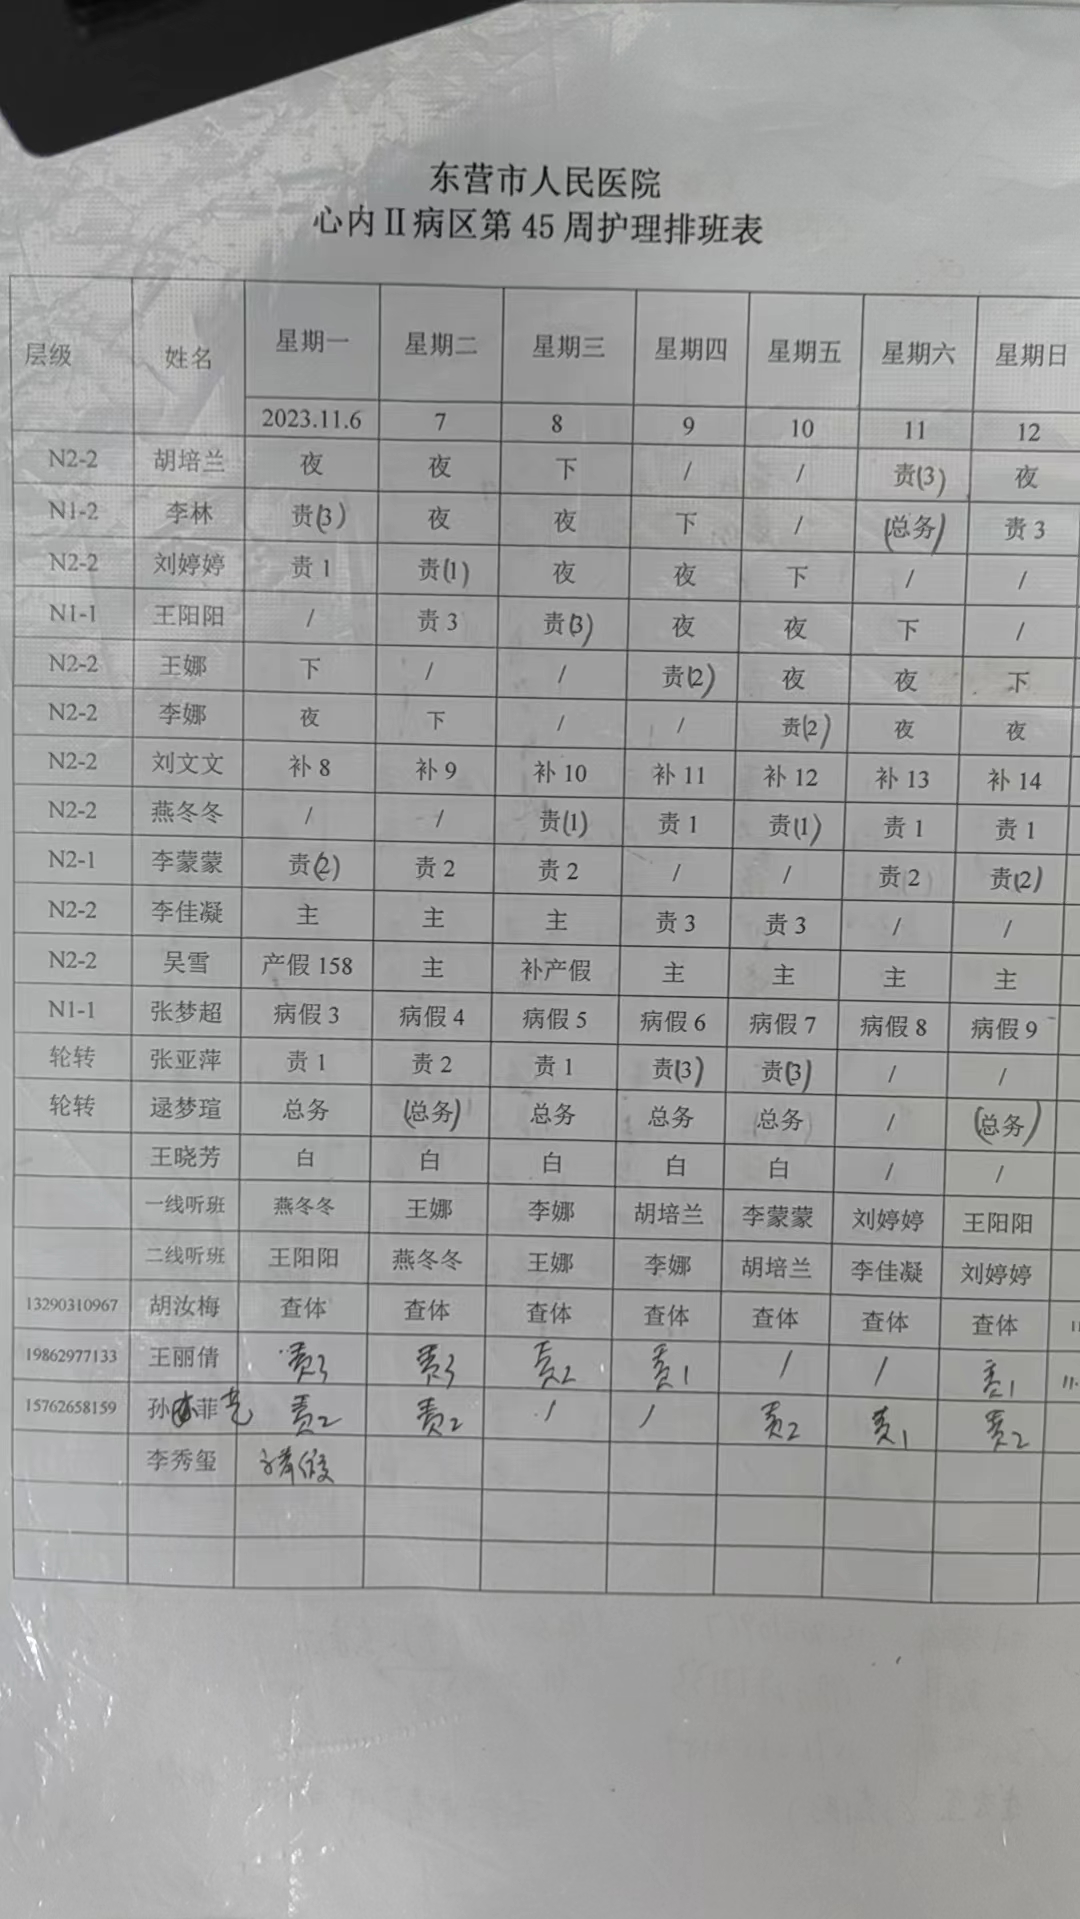 东营市人民医院
心内Ⅱ病区第 45 周护理排班表
层级 姓名 星期一 星期二 星期三 星期四 星期五 星期六 星期日
2023.11.6 7 8 9 10 11 12
N2-2 胡培兰 夜 夜 下 / / 责(3) 夜
N1-2 李林 责(3) 夜 夜 下 / (总务) 责 3
N2-2 刘婷婷 责 1 责(1) 夜 夜 下 / /
N1-1 王阳阳 / 责 3 责(3) 夜 夜 下 /
N2-2 王娜 下 / / 责(2) 夜 夜 下
N2-2 李娜 夜 下 / / 责(2) 夜 夜
N2-2 刘文文 补 8 补 9 补 10 补 11 补 12 补 13 补 14
N2-2 燕冬冬 / / 责(1) 责 1 责(1) 责 1 责 1
N2-1 李蒙蒙 责(2) 责 2 责 2 / / 责 2 责(2)
N2-2 李佳凝 主 主 主 责 3 责 3 / /
N2-2 吴雪 产假 158 主 补产假 主 主 主 主
N1-1 张梦超 病假 3 病假 4 病假 5 病假 6 病假 7 病假 8 病假 9
轮转 张亚萍 责 1 责 2 责 1 责(3) 责(3) / /
轮转 逯梦瑄 总务 (总务) 总务 总务 总务 / (总务)
王晓芳 白 白 白 白 白 / /
一线听班 燕冬冬 王娜 李娜 胡培兰 李蒙蒙 刘婷婷 王阳阳
二线听班 王阳阳 燕冬冬 王娜 李娜 胡培兰 李佳凝 刘婷婷
13290310967 胡汝梅 查体 查体 查体 查体 查体 查体 查体
19862977133 王丽倩 责3 责3 责2 责1 / / 责1
15762658159 孙菲 责2 责2 / / 责2 责1 责2
李秀玺